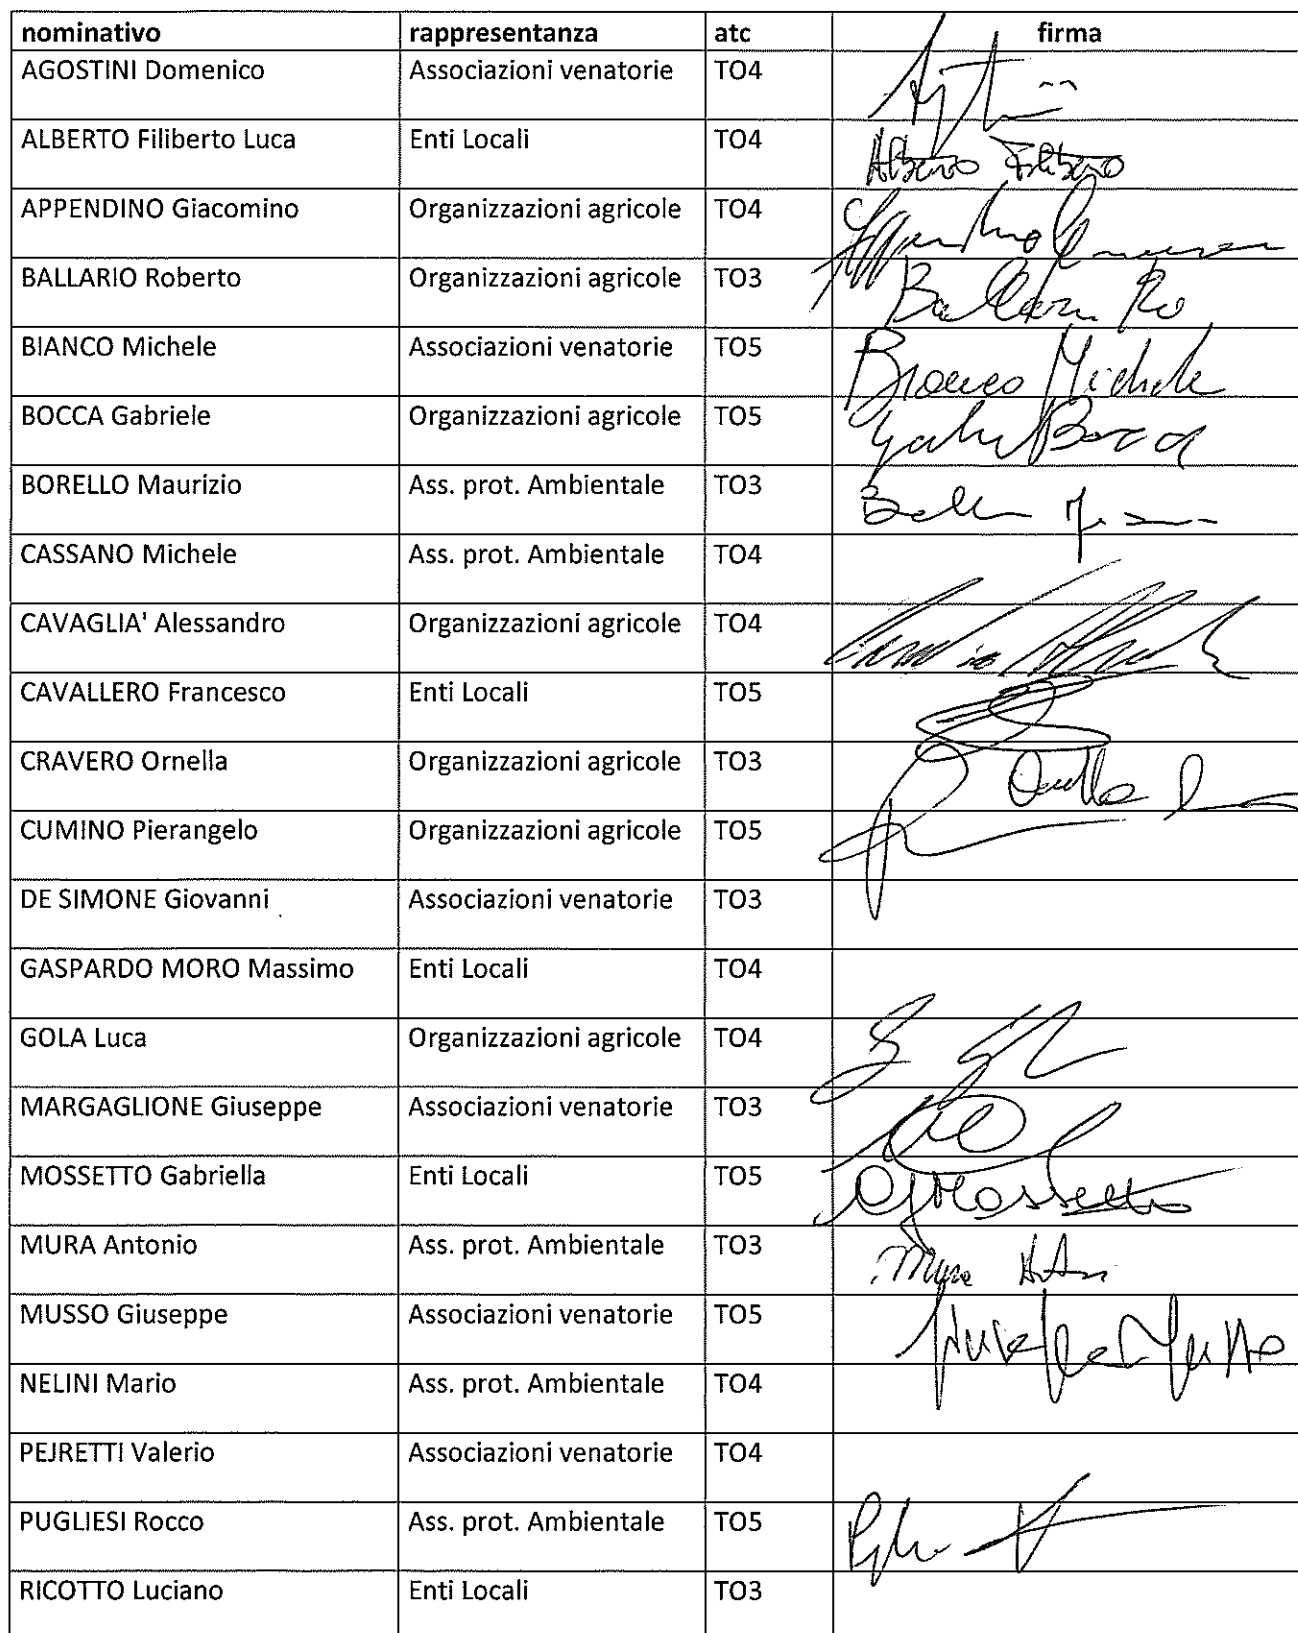 nominativo rappresentanza atc firma
AGOSTINI Domenico Associazioni venatorie TO4
ALBERTO Filiberto Luca Enti Locali TO4 Alberto Filiberto
APPENDINO Giacomino Organizzazioni agricole TO4
BALLARIO Roberto Organizzazioni agricole TO3
BIANCO Michele Associazioni venatorie TO5 Bianco Michele
BOCCA Gabriele Organizzazioni agricole TO5 Bocca
BORELLO Maurizio Ass. prot. Ambientale TO3
CASSANO Michele Ass. prot. Ambientale TO4
CAVAGLIA' Alessandro Organizzazioni agricole TO4
CAVALLERO Francesco Enti Locali TO5
CRAVERO Ornella Organizzazioni agricole TO3
CUMINO Pierangelo Organizzazioni agricole TO5
DE SIMONE Giovanni Associazioni venatorie TO3
GASPARDO MORO Massimo Enti Locali TO4
GOLA Luca Organizzazioni agricole TO4
MARGAGLIONE Giuseppe Associazioni venatorie TO3
MOSSETTO Gabriella Enti Locali TO5 G Mossetto
MURA Antonio Ass. prot. Ambientale TO3 Mura
MUSSO Giuseppe Associazioni venatorie TO5 Giuseppe Musso
NELINI Mario Ass. prot. Ambientale TO4
PEJRETTI Valerio Associazioni venatorie TO4
PUGLIESI Rocco Ass. prot. Ambientale TO5
RICOTTO Luciano Enti Locali TO3